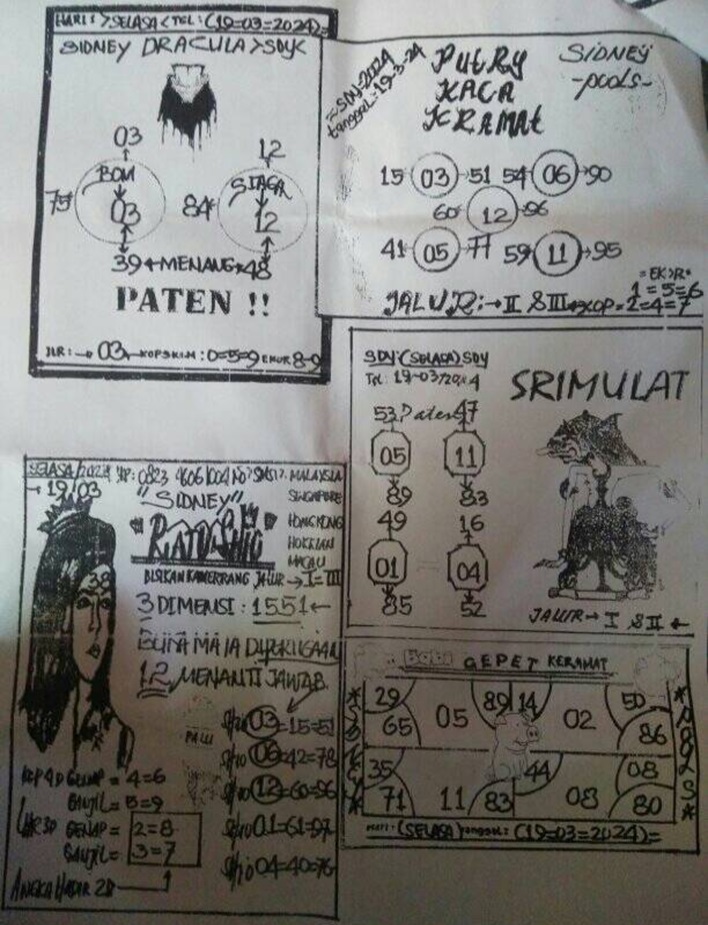 HARI: > SELASA < TGL: (19=03=2024)=
SIDNEY DRACULA > SDY<
03 12
BOM SIAGA
75 03 84 12
39 ← MENANG → 48
PATEN !!
JLR: → 03 KOPSKIM: 0=5=9 EKUR 8-9
=SDY=2024
tanggal: 19-3-24
PUTRY
KACA
KRAMAT
SIDNEY
-pools-
15 03 → 51 54 06 → 90
60 12 → 96
41 05 → 77 59 11 → 95
=EKOR=
1=5=6
JALUR: → II & III KOP = 2=4=7
SDY (SELASA) SDY
SRIMULAT
53 Paten 47
05 11
89 83
49 16
01 04
85 52
JALUR → I & II ←
SELASA/2024 HP: 0823 4606 1004
→ 19/03
MALAYSIA
SINGAPORE
HONGKONG
HOKKIAN
MACAU
"SIDNEY"
RATU SHIO
BISIKAN KAMERRANG JALUR → I = III
38
3 DIMENSI: 1551 ←
BUTA MATA DIPERKUSAAN
12 MENANTI JAWAB
PALU
S/hio 03 = 15=51
S/hio 06 = 42=78
S/hio 12 = 60=96
S/hio 01 - 61=97
S/hio 04 - 40=76
KEP 4D GENAP = 4=6
GANJIL = 5=9
GENAP = 2=8
GANJIL = 3=7
ANGKA HADIR 2D
Babi GEPET KERAMAT
29 89 14 50
65 05 02 86
35 44 08
71 11 83 08 80
HARI: (SELASA) tanggal: (19=03=2024)=